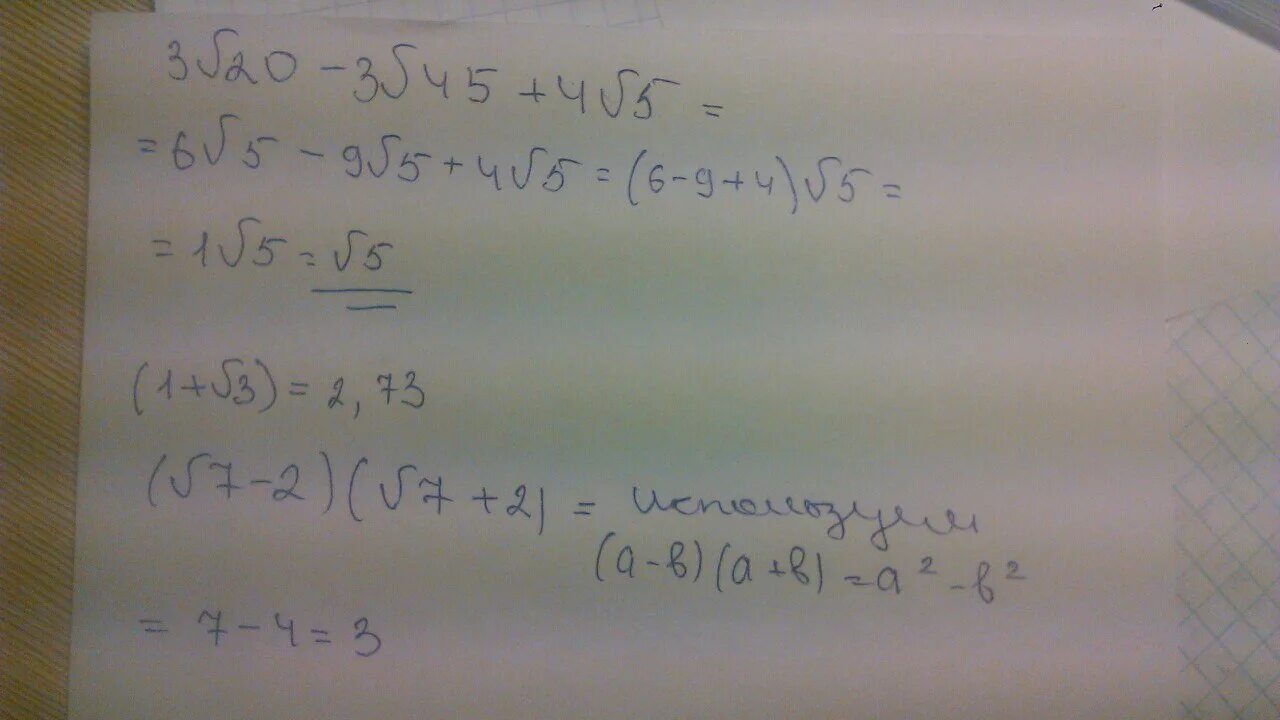 3√20 - 3√45 + 4√5 =
= 6√5 - 9√5 + 4√5 = (6-9+4)√5 =
= 1√5 = √5
(1+√3) = 2,73
(√7-2)(√7+2) = используем
(a-b)(a+b) = a² - b²
= 7-4 = 3